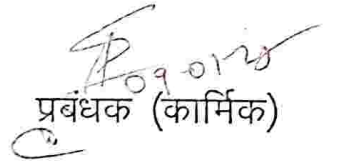 09-01-20
प्रबंधक (कार्मिक)